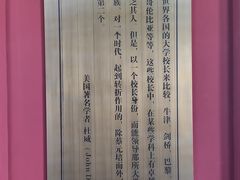 世界各国的大学校长来比较，牛津、剑桥、巴黎
哥伦比亚等等，这些校长中，在某些学科上有卓
之其人。但是，以一个校长身份，而能领导那所大
族、对一个时代，起到转折作用的，除蔡元培而外
第二个
美国著名学者 杜威（John